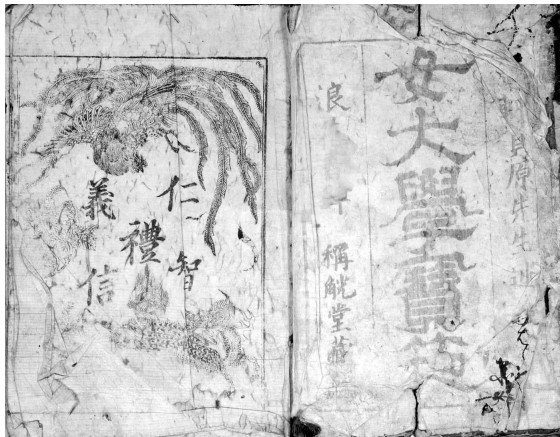 貝原先生述
女大學寶箱
浪
稱觥堂藏
仁智
禮
義信